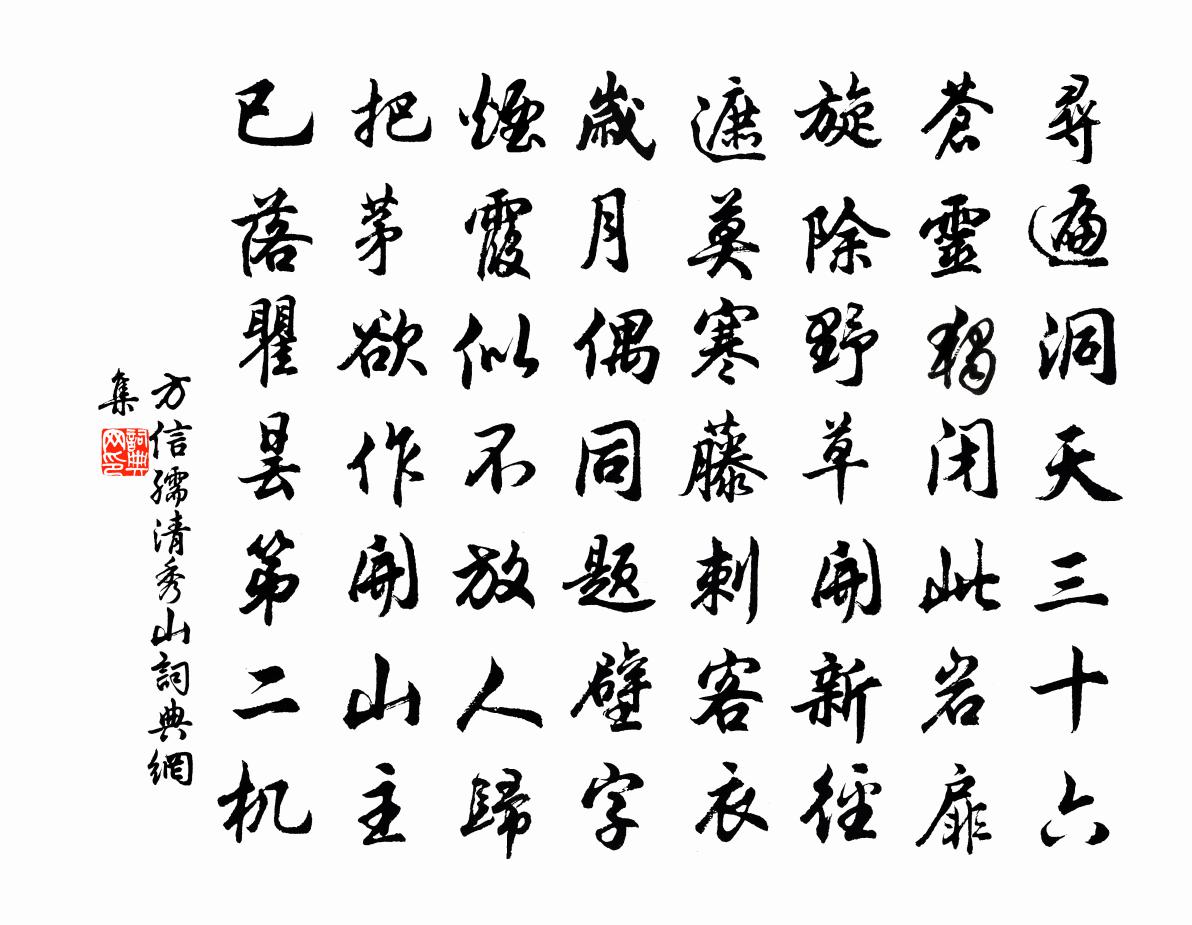 尋遍洞天三十六
蒼靈獨閉此岩扉
旋除野草開新徑
遮莫寒藤刺客衣
歲月偶同題壁字
煙霞似不放人歸
把茅欲作開山主
已落瞿曇第二机
方信孺清秀山詞典網
集
詞典
网印